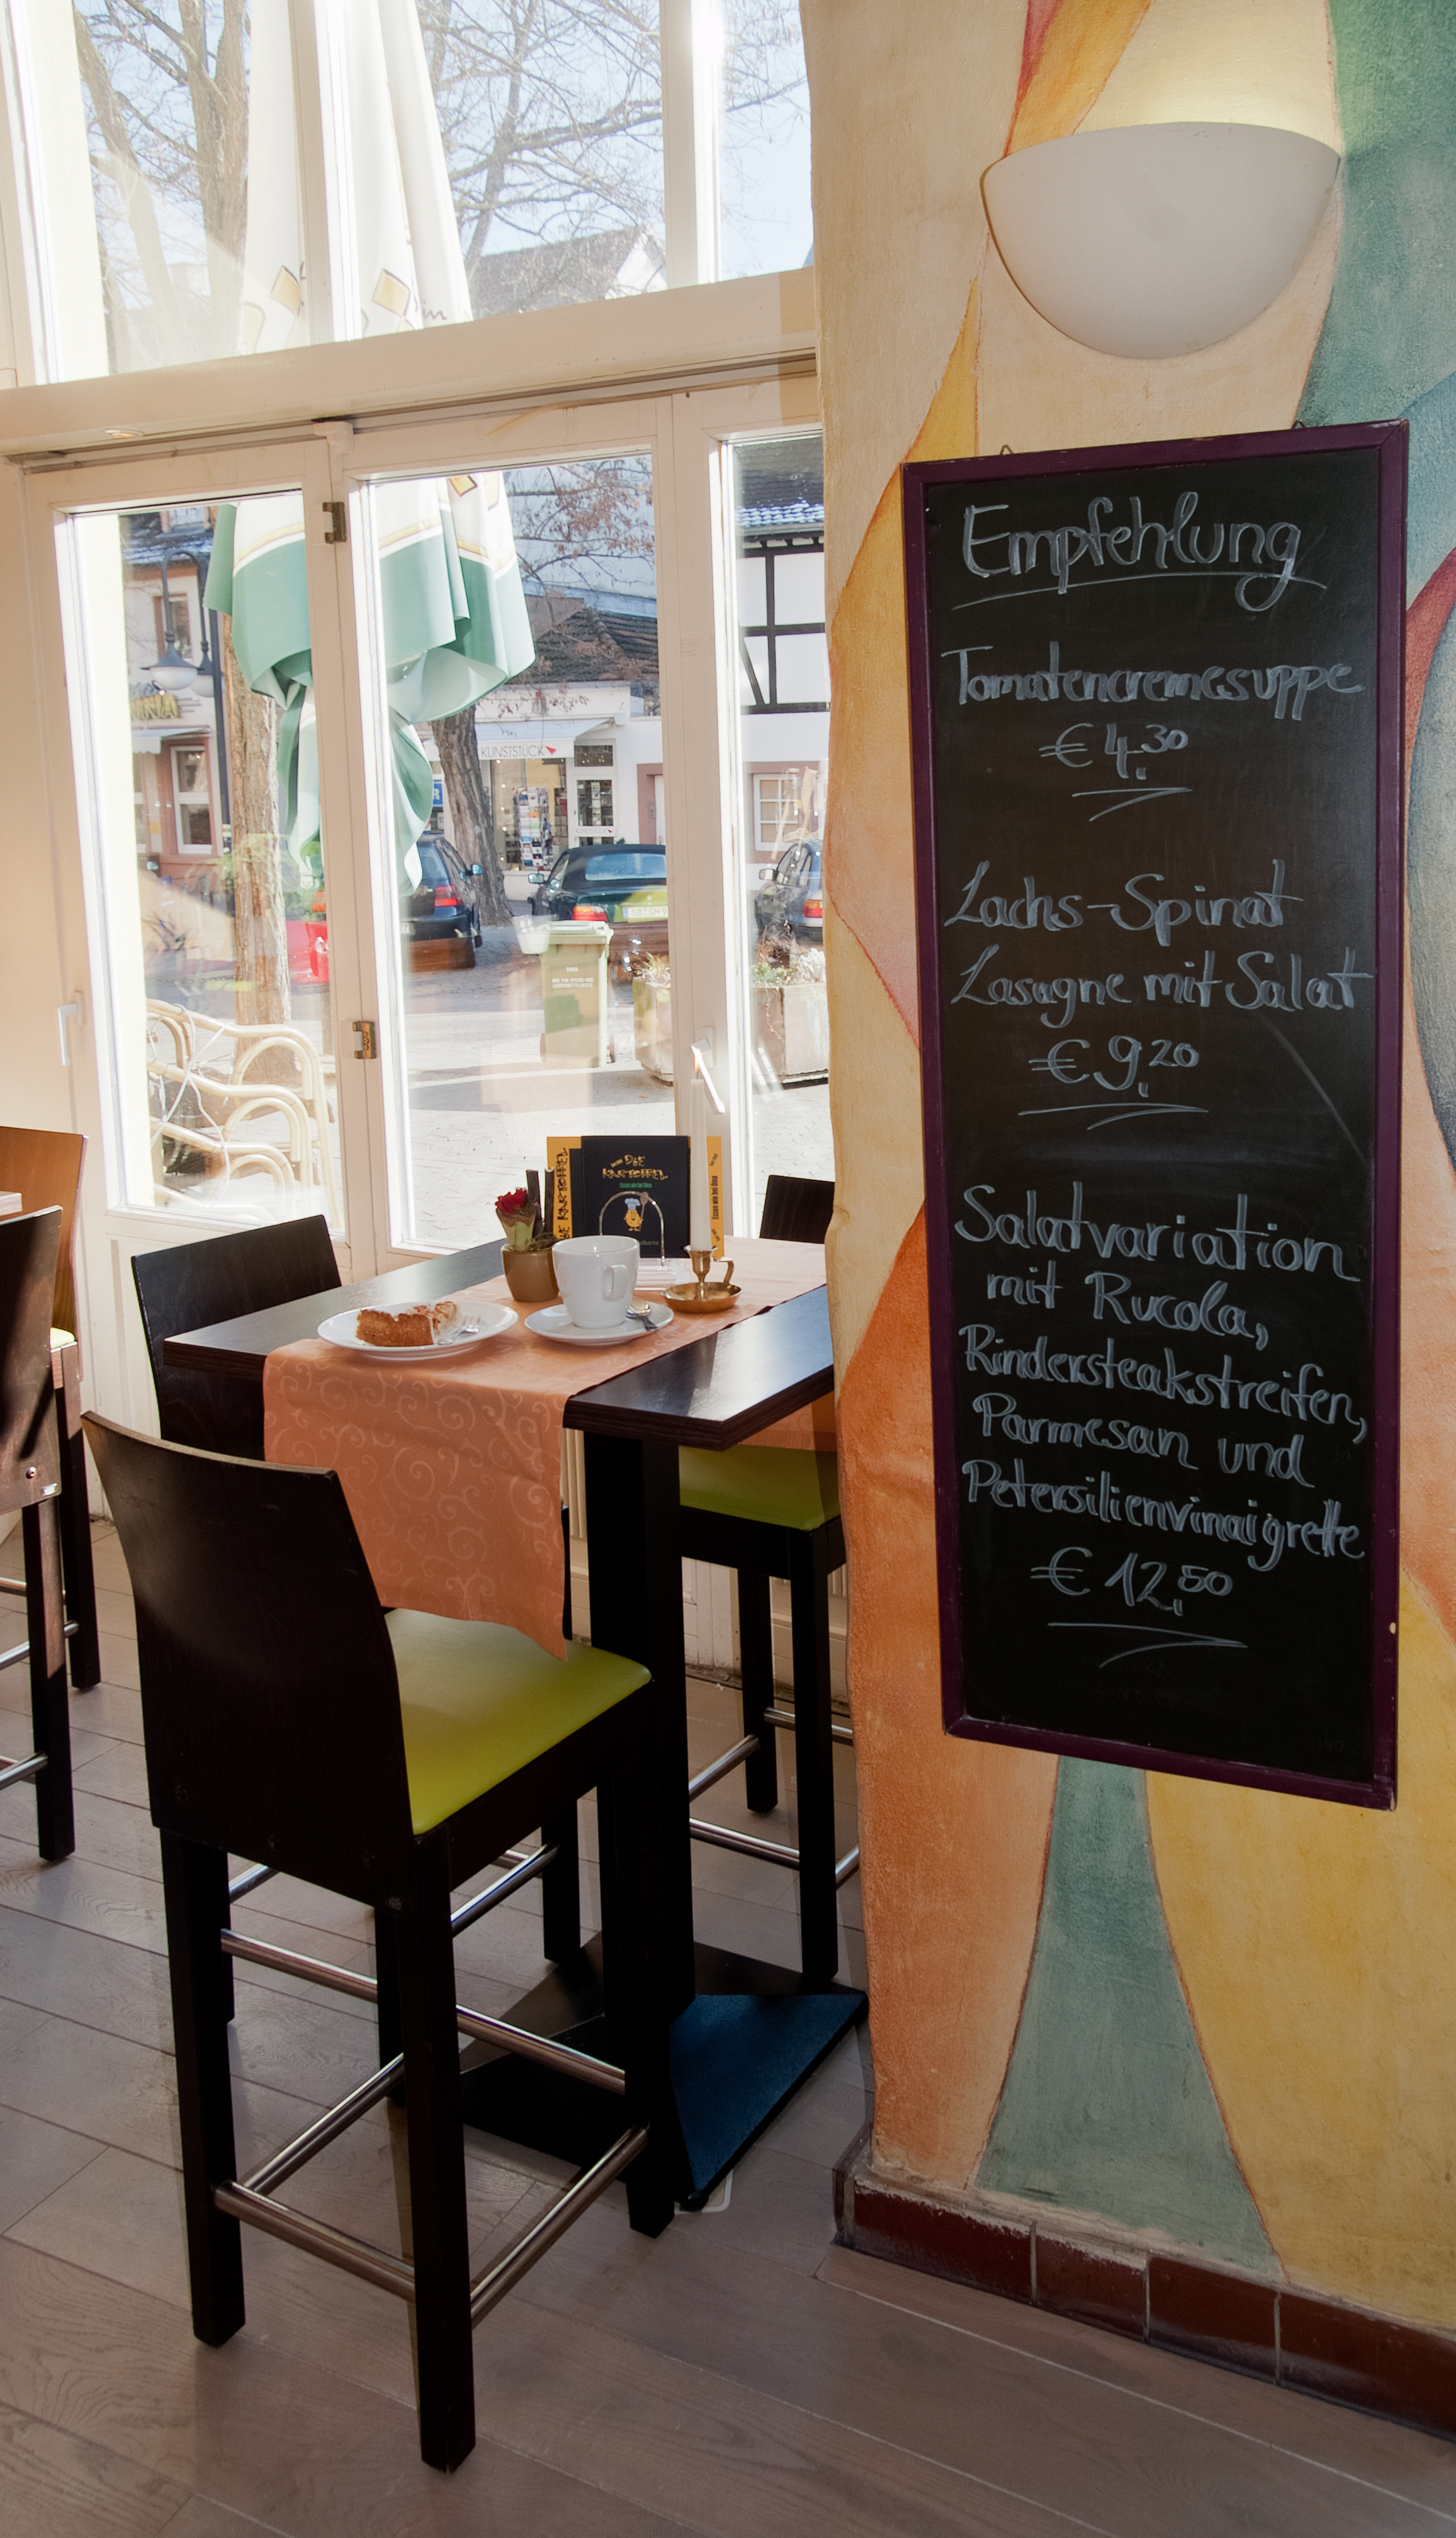 Empfehlung
Tomatencremesuppe
€ 4,30
Lachs-Spinat
Lasagne mit Salat
€ 9,20
Salatvariation
mit Rucola,
Rindersteakstreifen,
Parmesan und
Petersilienvinaigrette
€ 12,50
KUNSTSTÜCK
DIE
KARTOFFEL